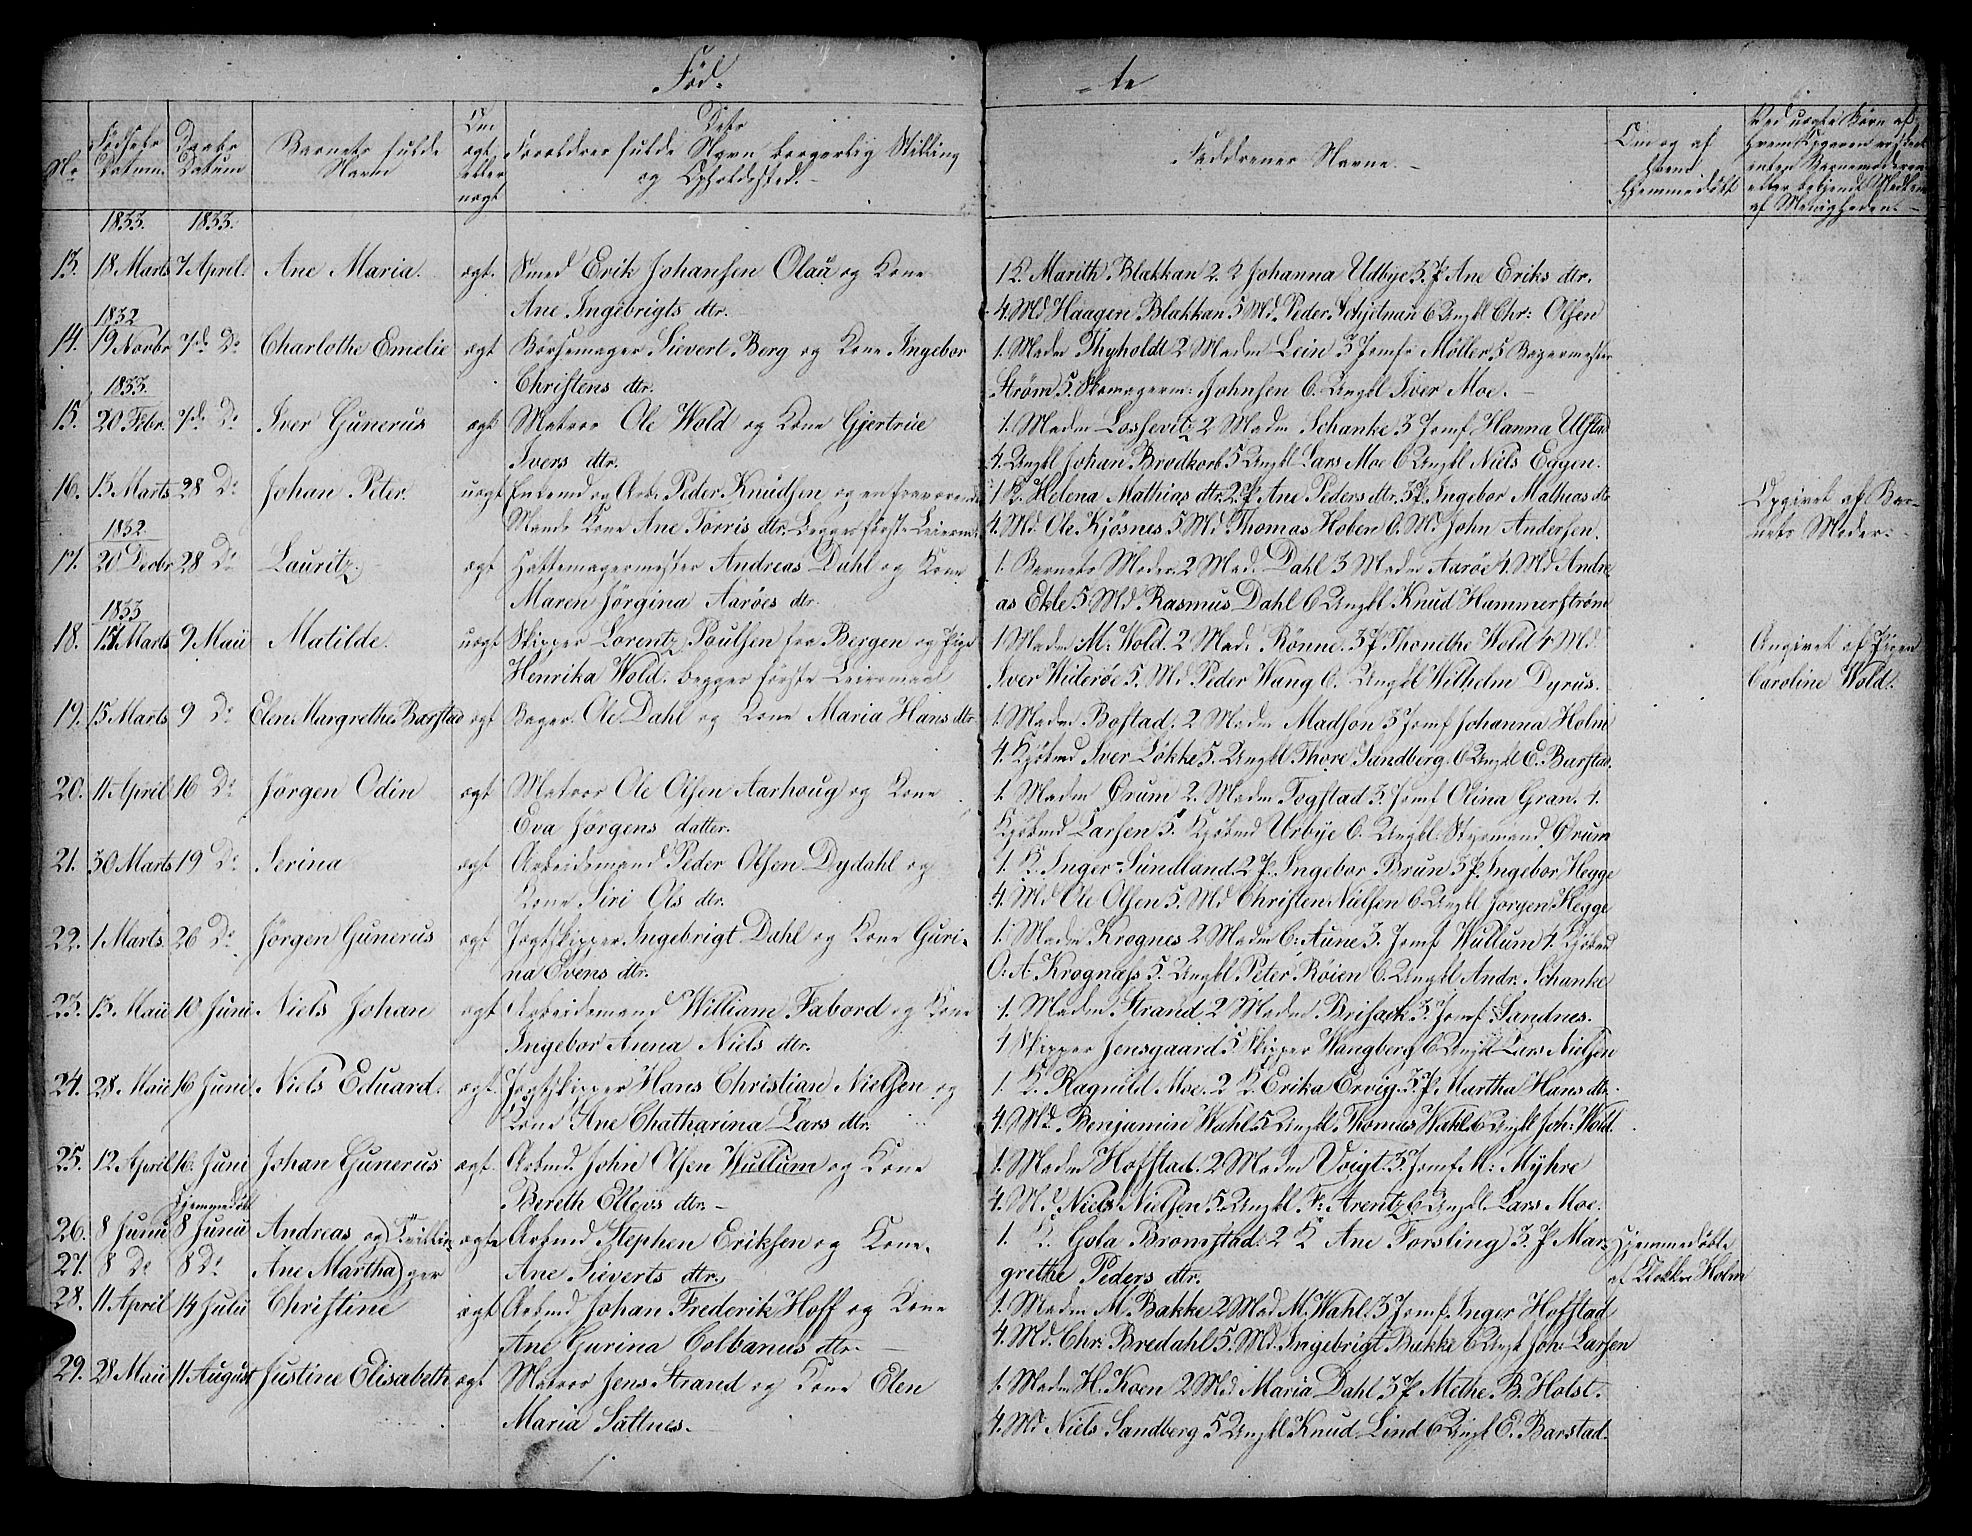 Fød-
te
No
Fødsels Datum.
Daabs Datum
Barnets fulde Navn
Om ægt eller uægt
Dets Forældres fulde Navn borgerlig Stilling og Opholdssted.
Faddrenes Navne.
Om og af hvem Hjemmedøbt
1833. 1833.
13. 18 Marts 7 April. Ane Maria. ægt. Smed Erik Johansen Olau og Kone
Ane Ingebrigts dtr.
1 K. Marith Blakkan 2. K Johanna Udbye 3. P Ane Eriks dtr.
4. Md Haagen Blakkan 5 Md. Peder 6 Ungkl Chr: Olsen
1832
14. 19 Novbr 7de Do Charlothe Emelie ægt Børsemager Sievert Berg og Kone Ingebor
Christens dtr.
1. Madm Thyholdt 2 Madm Lein 3 Jomfr Møller 5 Bagermester
Strøm 5. Skomagerm: Johnsen 6. Ungkl Iver Moe.
1833.
15. 20 Febr. 7de Do Iver Gunerus ægt Matros Ole Wold og Kone Gjertrue
Ivers dtr.
1. Madm Lossevitz 2 Madm Schanke 3 Jomf Hanna Ulstad
4. Ungkl Johan Brodkorb 5 Ungkl Lars Moe 6 Ungkl Niels Eggen.
16. 15 Marts 28 Do Johan Peter. uægt Enkemd og Arb. Peder Knudsen og en fraværende
Mands Kone Ane Torris dtr. Begges første Leierm.
1 K. Helena Mathias dtr. 2. P Ane Peders dtr. 3 P. Ingebor Mathias dtr
4. Md. Ole Kjøsnes 5 Md Thomas Hoben 6. Md John Andersen.
Opgivet af Bar-
nets Moder.
1832
17. 20 Decbr 28 Do Lauritz. ægt Hattemagermester Andreas Dahl og Kone
Maren Jørgina Aarøes dtr.
1. Barnets Moder 2 Mad. Dahl 3 Madm Aarøe 4. Md Andre
as Ekle 5. Md. Rasmus Dahl 6 Ungkl Knud Hammerstrøm
1833
18. Marts 9 Maii Matilde. uægt Skipper Lorentz Poulsen fra Bergen og Pige
Henrika Wold. begges første Leiermaal
1 Madm M: Wold. 2 Mad. Rønne. 3 P Thonethe Wold 4 Md.
Iver Widerøe 5. Md Peder Wang 6. Ungkl Wilhelm Dyrus.
Angivet af Pigen
Caroline Wold.
19. 15 Marts 9 Do Elen Margrethe Barstad ægt Bager. Ole Dahl og Kone Maria Hans dtr
1. Madm Bostad. 2 Madm Madson 3 Jomf Johanna Holm
4. Kjøbmd Iver Løkke 5. Ungkl Thore Sundberg. 6 Ungkl E. Barstad.
20. 11 April 16 Do Jørgen Odin ægt Matros Ole Olsen Aarhoug og Kone
Eva Jørgens datter.
1. Madm Ørum 2. Madm Togstad 3. Jomf Olina Gran. 4.
Kjøbmd Larsen 5. Kjøbmd Urbye 6. Ungkl Styrmand Ørum
21. 30 Marts 19 Do Serina ægt Arbeidsmand Peder Olsen Dydahl og
Kone Siri Ols dtr.
1. K. Inger Sundland. 2 P. Ingebor Brun 3 P. Ingebor Hegge
4. Md Ole Olsen 5. Md Christen Nielsen 6 Ungkl Jørgen Hegge
22. 1 Marts. 26 Do Jørgen Gunerus ægt Jagtskipper Ingebrigt Dahl og Kone Guri-
na Evens dtr.
1. Madm Krognes 2 Madm C: Aune 3. Jomf Wullum 4. Kjøbmd
O: A. Krognæss 5. Ungkl Peter Røien 6. Ungkl Andr. Schanke
23. 13. Maii 10 Juni Niels Johan ægt Arbeidsmand William Fabord og Kone
Ingebor Anna Niels dtr.
1. Madm Strand 2 Madm Brisack 3. Jomf Sandnes.
4 Skipper Jensgaard 5 Skipper Wangberg 6 Ungkl Lars Nielsen
24. 28. Maii 16 Juni Niels Eduard. ægt. Jagtskipper Hans Christian Nielsen og
Kone Ane Chatharina Lars dtr.
1. K. Ragnild Moe. 2 K Erika Ervig. 3. P Martha Hans dtr.
4. Md. Benjamin Wahl 5 Ungkl Thomas Wahl 6 Ungkl Joh: Wold.
25. 12 April 16. Juni Johan Gunerus ægt. Arbmd. John Olsen Wullum og Kone
Bereth Ellevs dtr.
1. Madm Hofstad. 2 Madm Voigt. 3. Jomf M: Myhre
4. Md Niels Nielsen 5. Ungkl F: Arentz 6 Ungkl. Lars Moe.
Hjemmedøbt
26. 8 Junii 8 Junii Andreas og Tvillin- ægte Arbmd Stephen Eriksen og Kone
27. 8 Do 8 Do Ane Martha ger Ane Sieverts dtr.
1. K. Gola Bromstad. 2 K Ane Forsling 3. P Mar-
grethe Peders dtr.
Hjemmedøbte
af Klokker Holm
28. 11 April 14 Julii Christine ægt Arbmd Johan Frederik Hoff og Kone
Ane Gurina Colbanus dtr.
1. Madm M. Bakke 2 Mad M. Wahl. 3 Jomf. Inger Hofstad
4. Md. Chr. Bredahl 5. Md. Ingebrigt Bakke 6 Ungkl Joh. Larsen
29. 28 Maii 11 August Justine Elisabeth ægt Matros Jens Strand og Kone Elen
Maria Saltnes.
1. Madm H. Koen 2 Md Maria Dahl 3 P Methe B. Holst.
4. Md Niels Sandberg 5 Ungkl Knud Lind 6 Ungkl E. Barstad.